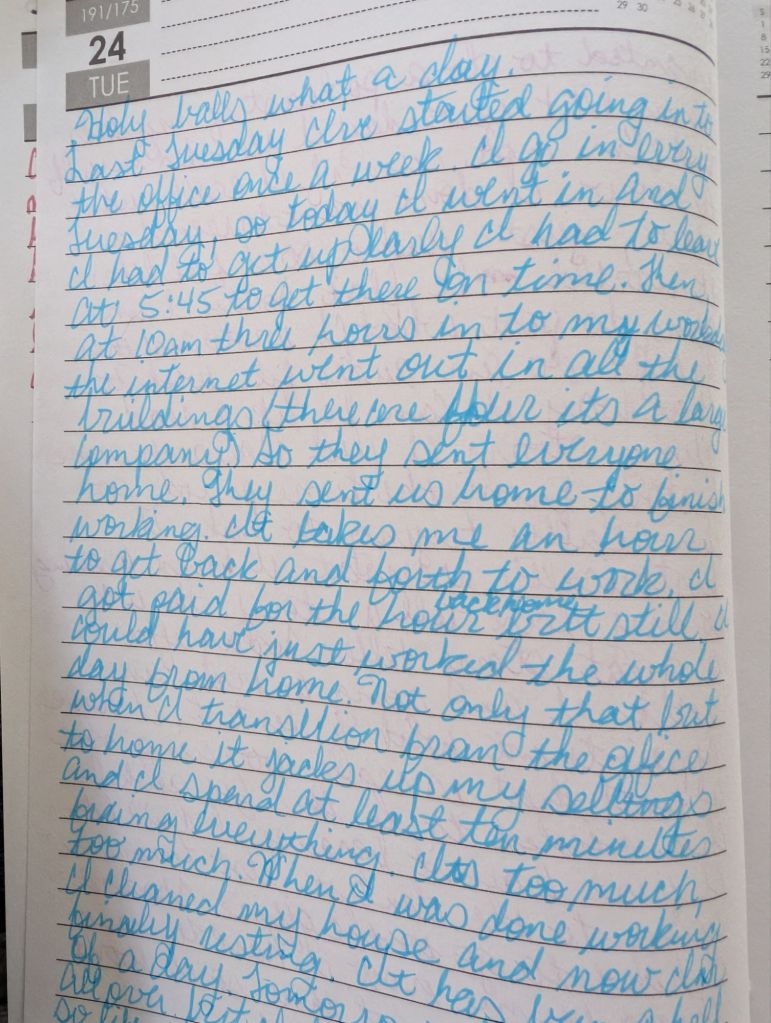 191/175
24
TUE
29 30
Holy balls what a day.
Last Tuesday I've started going in to
the office once a week. I go in every
Tuesday, so today I went in and
I had to get up early I had to leave
at 5:45 to get there on time. Then
at 10am three hours in to my workday
the internet went out in all the
buildings (there are four its a large
company) so they sent everyone
home. They sent us home to finish
working. It takes me an hour
to get back and forth to work, I
got paid for the hour back home but still, I
could have just worked the whole
day from home. Not only that but
when I transition from the office
to home it jacks up my settings
and I spend at least ten minutes
fixing everything. Its too much,
too much. When I was done working
I cleaned my house and now Im
finally resting. It has been a hell
of a day. Tomorrow
all over
so